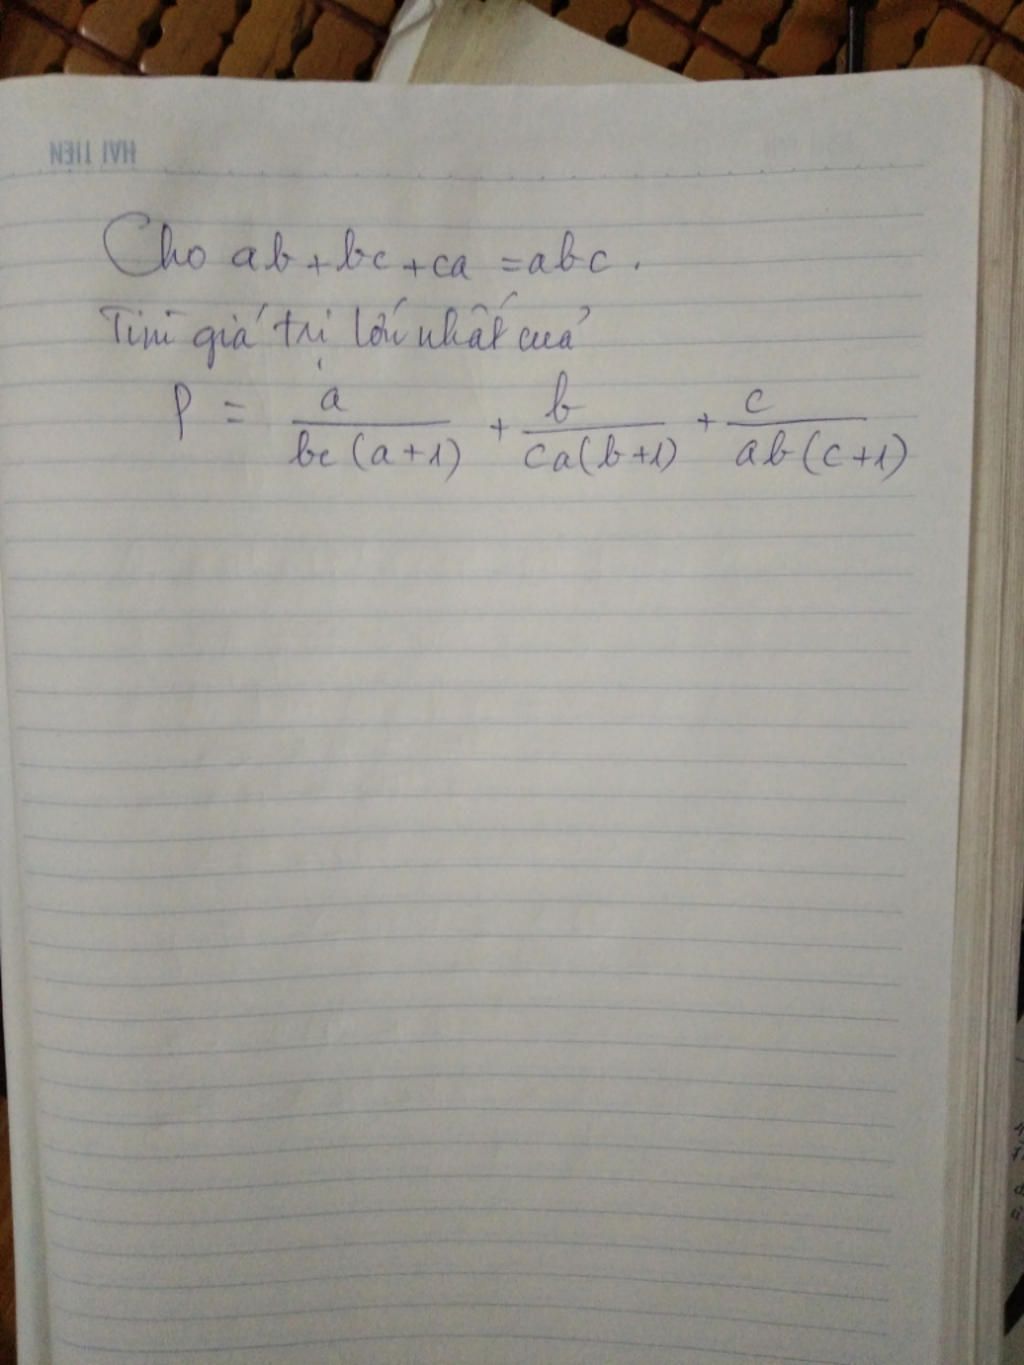 HAI TIEN
Cho ab + bc + ca = abc.
Tìm giá trị lớn nhất của
P = a/(bc(a+1)) + b/(ca(b+1)) + c/(ab(c+1))